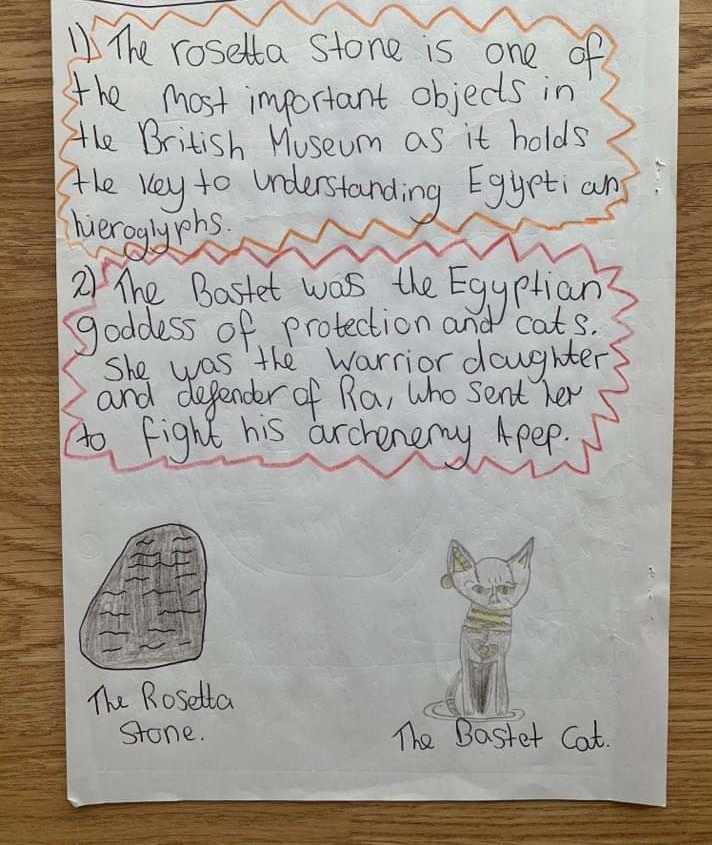 1) The rosetta Stone is one of
the most important objects in
the British Museum as it holds
the key to understanding Egyptian
hieroglyphs.
2) The Bastet was the Egyptian
goddess of protection and cats.
She was the warrior daughter
and defender of Ra, who sent her
to fight his archenemy Apep.
The Rosetta
Stone.
The Bastet Cat.